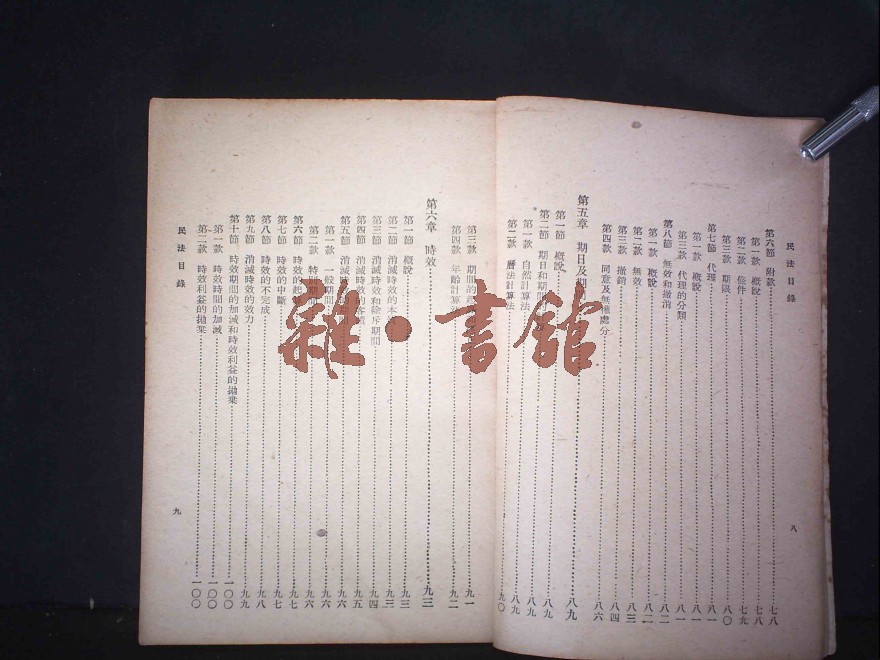 民法目錄
第六節 附款 七八
第一款 概說 七八
第二款 條件 七九
第三款 期限 八〇
第七節 代理 八一
第一款 概說 八一
第二款 代理的分類 八一
第八節 無效和撤消 八二
第一款 概說 八二
第二款 無效 八三
第三款 撤銷 八四
第四款 同意及無權處分 八六
第五章 期日及期 八九
第一節 概說 八九
第二節 期日和期間 八九
第一款 自然計算法 八九
第二款 曆法計算法 九〇
八
第三款 期間的 九一
第四款 年齡計算 九二
第六章 時效 九三
第一節 概說 九三
第二節 消滅時效的本 九三
第三節 消滅時效和除斥期間 九四
第四節 消滅時效的客 九五
第五節 消滅時 九六
第一款 一般期間 九六
第二款 特別期 九六
第六節 時效的起 九七
第七節 時效的中斷 九七
第八節 時效的不完成 九八
第九節 消滅時效的效力 九九
第十節 時效期間的加減和時效利益的拋棄 一〇〇
第一款 時效期間的加減 一〇〇
第二款 時效利益的拋棄 一〇〇
民法目錄
九
雜·書館